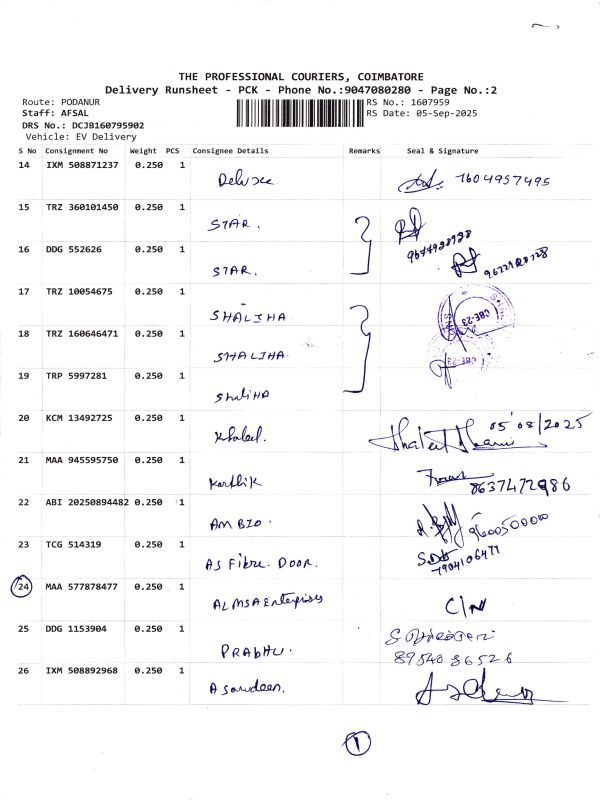 THE PROFESSIONAL COURIERS, COIMBATORE
Delivery Runsheet - PCK - Phone No.:9047080280 - Page No.:2
Route: PODANUR
RS No.: 1607959
Staff: AFSAL
RS Date: 05-Sep-2025
DRS No.: DCJB160795902
Vehicle: EV Delivery
S No Consignment No Weight PCS Consignee Details Remarks Seal & Signature
14 IXM 508871237 0.250 1 7604957495
15 TRZ 360101450 0.250 1 STAR.
16 DDG 552626 0.250 1 STAR.
17 TRZ 10054675 0.250 1 SHALIHA CBE-23
18 TRZ 160646471 0.250 1 SHALIHA CBE-23
19 TRP 5997281 0.250 1 ShaliHA
20 KCM 13492725 0.250 1 Khaleel. 05/08/2025
21 MAA 945595750 0.250 1 Karthik 8637472986
22 ABI 20250894482 0.250 1 AM BIO. 9600500000
23 TCG 514319 0.250 1 AS Fibre. DOOR. 7904106477
24 MAA 577878477 0.250 1 ALMSA Enterprises C/N
25 DDG 1153904 0.250 1 PRABHU. 8954086526
26 IXM 508892968 0.250 1
1